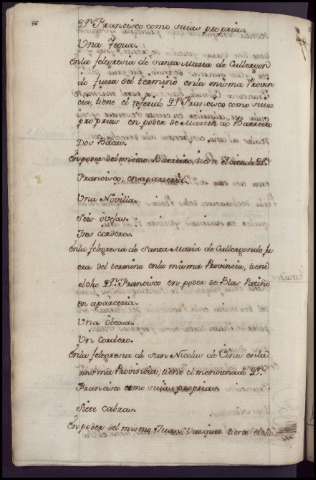 Dn. Francisco como suias proprias
Una Yegua
en la felegresia de santa Maria de Cullergondo
fuera del termino en la misma Provin
cia, tiene el referido Dn. Francisco como suias
proprias en poder de Barreiro
Dos Bacas
En poder del mismo Barreiro, tiene el Dn.
Francisco, en aparceria
Una Novilla
Seis ovejas
Tres corderos
En la felegresia de santa Maria de Cullergondo fu
era del termino en la misma Provincia, tiene
el dho Dn. Francisco en poder de Blas Patiño
en aparceria
Una obeja
Un cordero
En la felegresia de san Nicolas de Cines en la
misma Provincia, tiene el mencionado Dn.
Francisco como suias proprias
Siete cabras
En poder del mismo Juan Vazquez tiene el dho